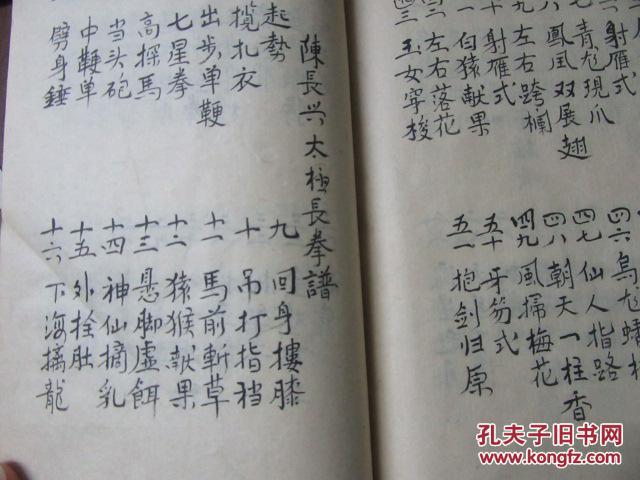 射雁式
七 青龙現爪
八 鳳凰双展翅
九 左右跨欄
十 射雁式
一 白猿献果
左右落花
四三 玉女穿梭
四六 烏龙蟠
四七 仙人指路
四八 朝天一柱香
四九 風掃梅花
五十 牙笏式
五一 抱剑归原
陳長兴太極長拳譜
起勢
揽扎衣
出步单鞭
七星拳
高探馬
当头砲
中鞭单
劈身錘
九 回身搂膝
十 吊打指裆
十一 馬前斬草
十二 猿猴献果
十三 悬脚虚餌
十四 神仙摘乳
十五 外拴肚
十六 下海擒龍
孔夫子旧书网
www.kongfz.com